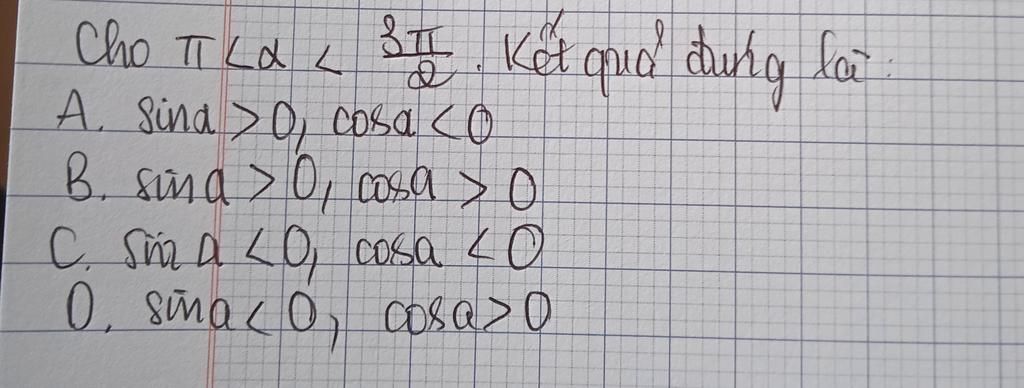 Cho π < α < 3π/2. Kết quả đúng là:
A. sina > 0, cosa < 0
B. sina > 0, cosa > 0
C. sina < 0, cosa < 0
D. sina < 0, cosa > 0